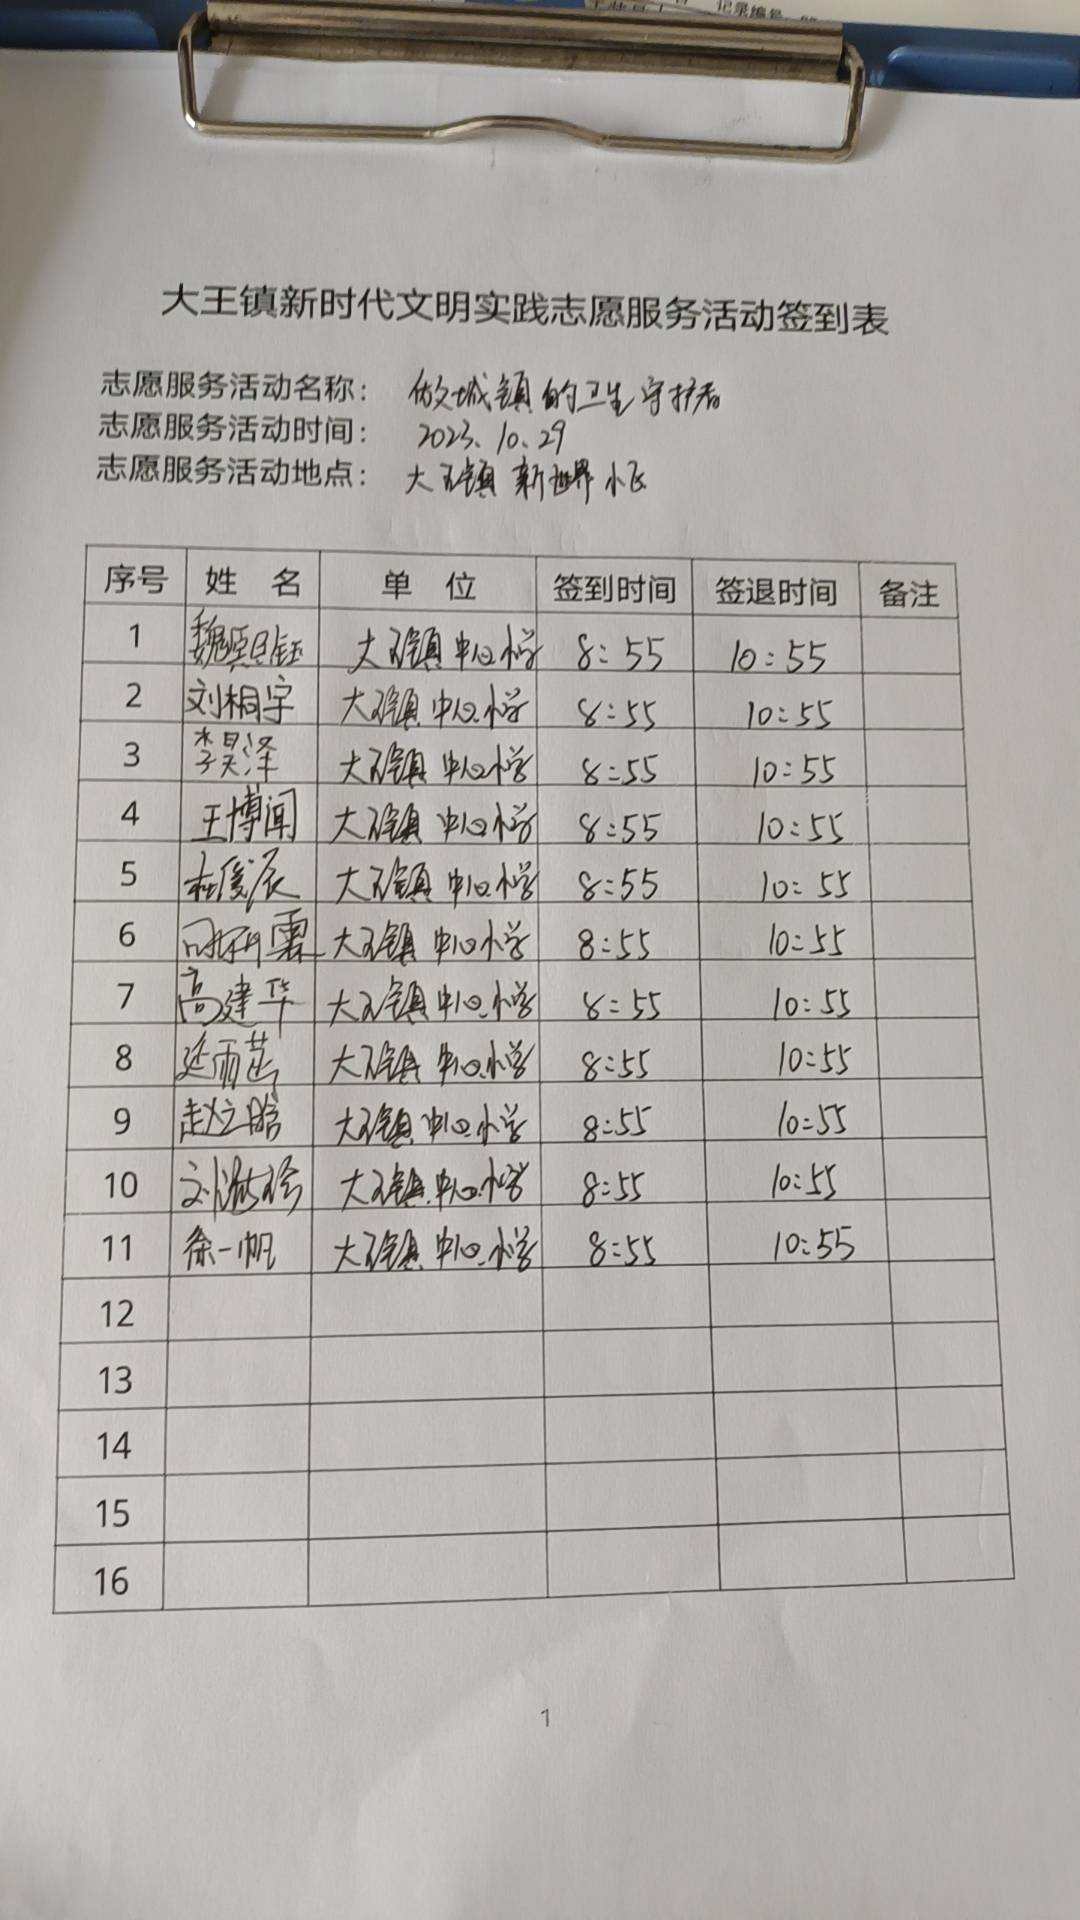 记录编号
大王镇新时代文明实践志愿服务活动签到表
志愿服务活动名称： 做城镇的卫生守护者
志愿服务活动时间： 2023.10.29
志愿服务活动地点： 大王镇新世界小区
序号 姓 名 单 位 签到时间 签退时间 备注
1 大王镇中心小学 8:55 10:55
2 刘桐宇 大王镇中心小学 8:55 10:55
3 李昊泽 大王镇中心小学 8:55 10:55
4 王博闻 大王镇中心小学 8:55 10:55
5 杜俊辰 大王镇中心小学 8:55 10:55
6 大王镇中心小学 8:55 10:55
7 高建华 大王镇中心小学 8:55 10:55
8 延雨菡 大王镇中心小学 8:55 10:55
9 赵立晗 大王镇中心小学 8:55 10:55
10 大王镇中心小学 8:55 10:55
11 徐一帆 大王镇中心小学 8:55 10:55
12
13
14
15
16
1